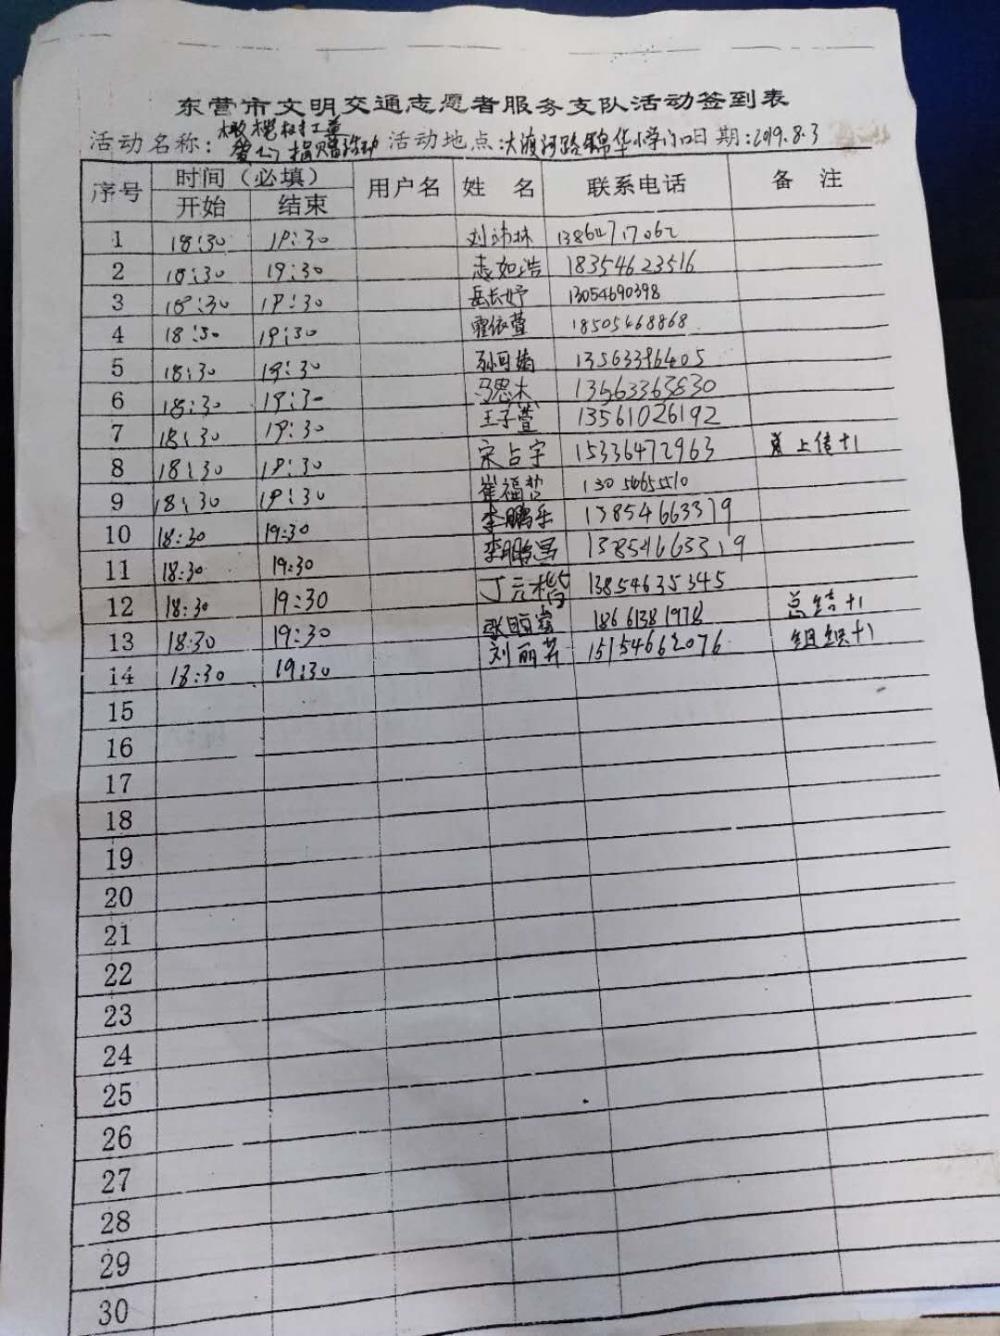 东营市文明交通志愿者服务支队活动签到表
活动名称：橄榄树公益爱心捐赠活动 活动地点：大渡河路锦华小学门口日期：2019.8.3
序号 时间（必填） 用户名 姓 名 联系电话 备 注
开始 结束
1 18:30 19:30
2 18:30 19:30 如浩 18354623516
3 18:30 19:30 岳长妤 13054690398
4 18:30 19:30 霍依萱 18505468868
5 18:30 19:30 孙可 13563396405
6 18:30 19:30 马思杰
7 18:30 19:30 王子萱 13561026192
8 18:30 19:30 宋占宇 15336472963 上传+1
9 18:30 19:30 崔福哲
10 18:30 19:30 李鹏乐 13854663379
11 18:30 19:30 李鹏 13854663319
12 18:30 19:30 丁元 13854635345
13 18:30 19:30 张 18661381978 总结+1
14 18:30 19:30 刘丽 15154662076 组织+1
15
16
17
18
19
20
21
22
23
24
25
26
27
28
29
30